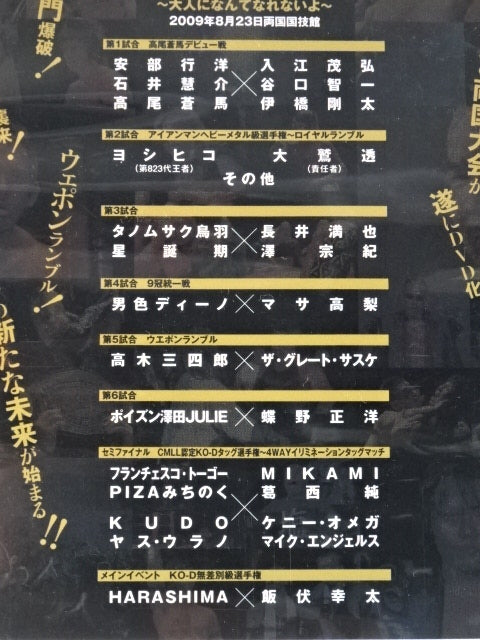 〜大人になんてなれないよ〜
2009年8月23日両国国技館
第1試合 高尾蒼馬デビュー戦
安部行洋 入江茂弘
石井慧介 × 谷口智一
高尾蒼馬 伊橋剛太
第2試合 アイアンマンヘビーメタル級選手権〜ロイヤルランブル
ヨシヒコ 大鷲透
(第823代王者) (責任者)
その他
第3試合
タノムサク鳥羽 × 長井満也
星誕期 澤宗紀
第4試合 9冠統一戦
男色ディーノ × マサ高梨
第5試合 ウエポンランブル
高木三四郎 × ザ・グレート・サスケ
第6試合
ポイズン澤田JULIE × 蝶野正洋
セミファイナル CMLL認定KO-Dタッグ選手権〜4WAYイリミネーションタッグマッチ
フランチェスコ・トーゴー MIKAMI
PIZAみちのく 葛西純
×
KUDO ケニー・オメガ
ヤス・ウラノ マイク・エンジェルス
メインイベント KO-D無差別級選手権
HARASHIMA × 飯伏幸太
門爆破!
襲来!
ウェポンランブル!
新たな未来が始まる!!
両国大会が
遂にDVD化